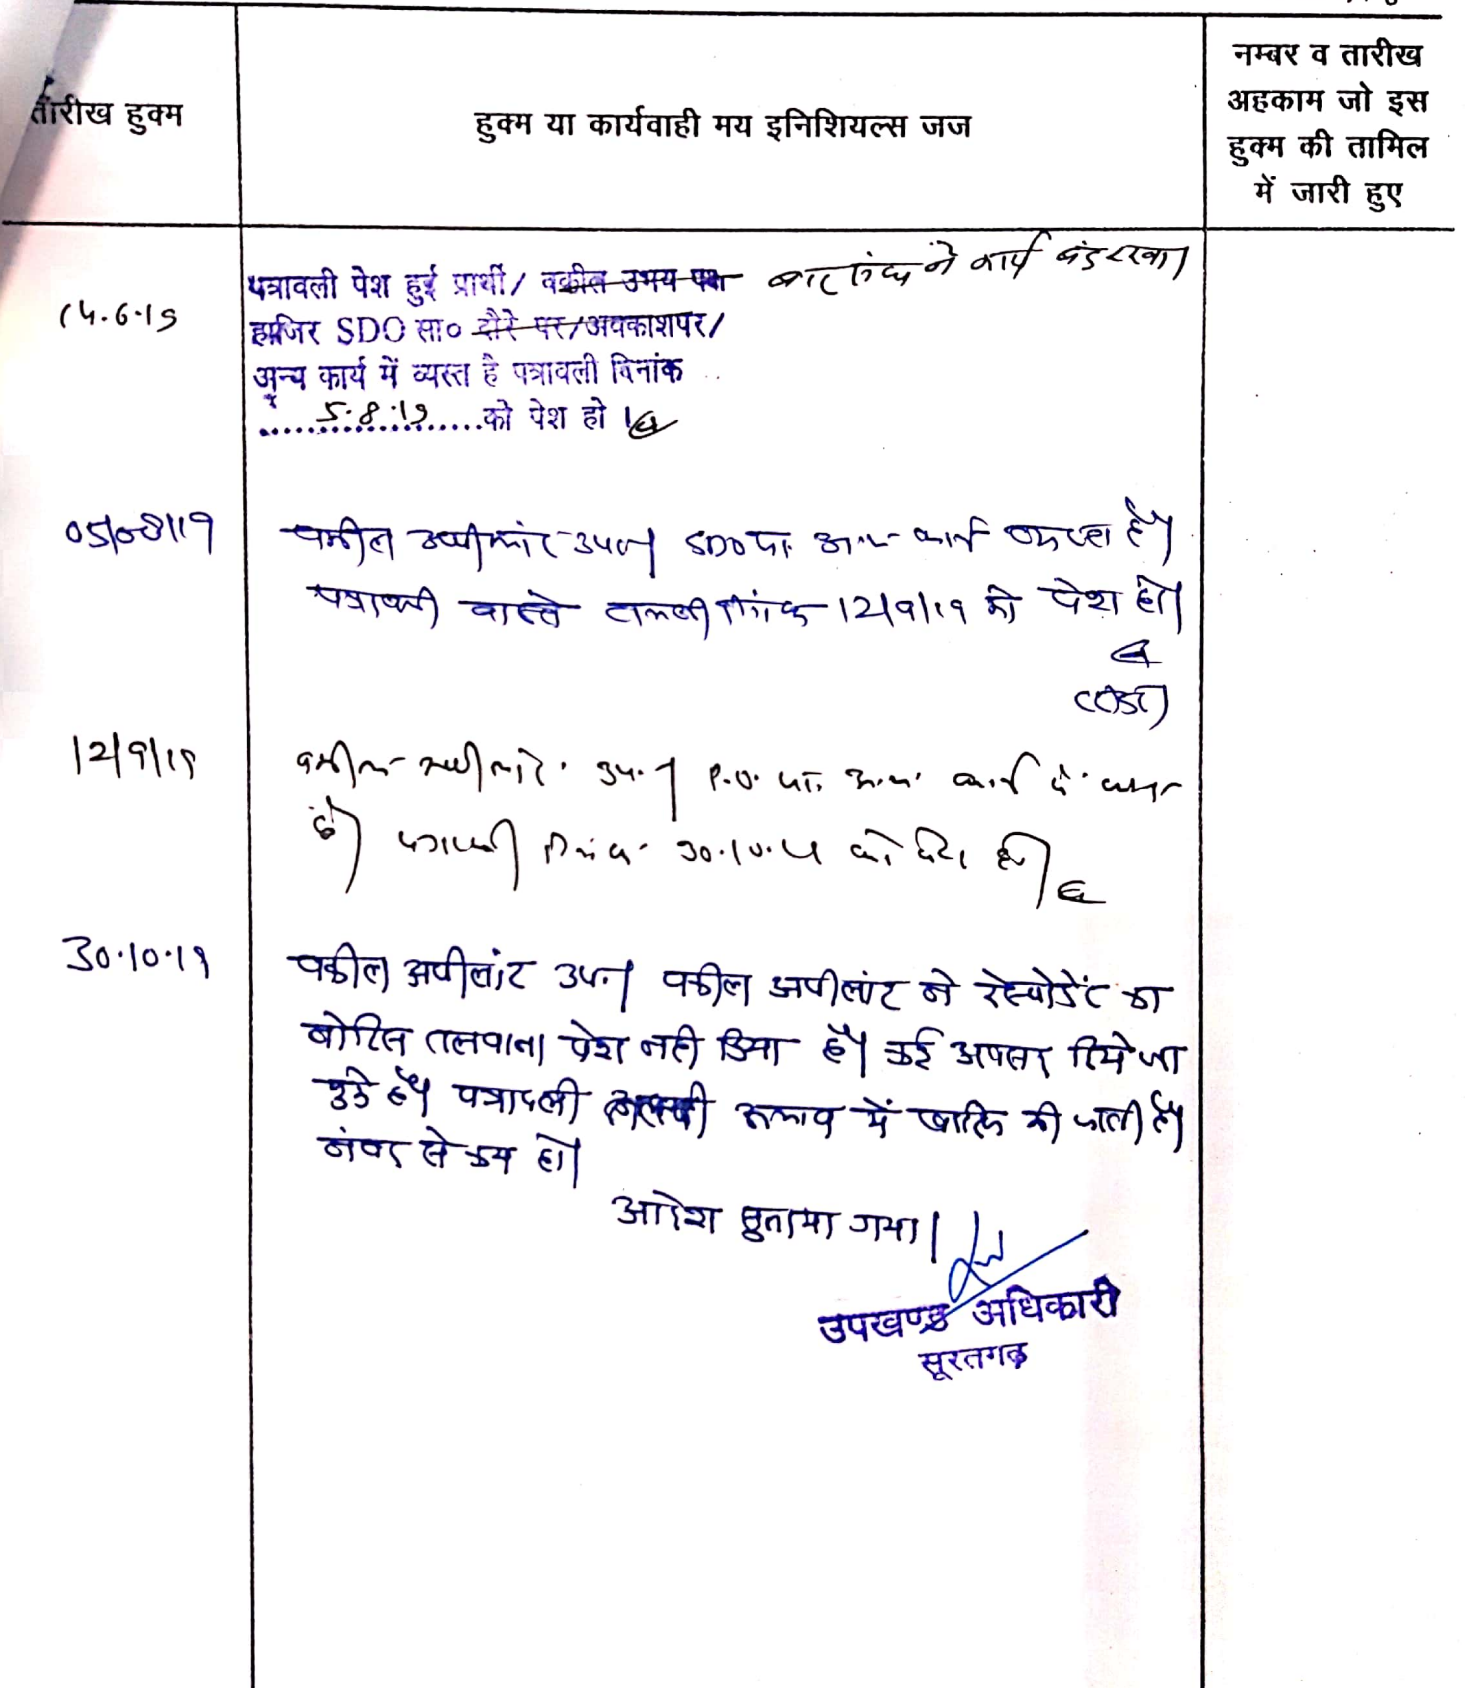 तारीख हुक्म
हुक्म या कार्यवाही मय इनिशियल्स जज
नम्बर व तारीख
अहकाम जो इस
हुक्म की तामिल
में जारी हुए
14.6.19
पत्रावली पेश हुई प्रार्थी/ वकील उभय पक्ष बार संघ ने कार्य बंद रखा।
हाजिर SDO सा० दौरे पर/अवकाशपर/
अन्य कार्य में व्यस्त है पत्रावली दिनांक
5.8.19 को पेश हो।
05/08/19
वकील अपीलांट उप०। SDO सा. अन्य कार्य व्यस्त है।
पत्रावली वास्ते तलबी दिनांक 12/9/19 को पेश हो।
12/9/19
वकील अपीलांट उप.। P.O. सा. अन्य कार्य में व्यस्त
है। पत्रावली दिनांक 30.10.19 को पेश हो।
30.10.19
वकील अपीलांट उप.। वकील अपीलांट ने रेस्पोडेंट का
नोटिस तलवाना पेश नही किया है। कई अवसर दिये जा
चुके है। पत्रावली तलबी अभाव में खारिज की जाती है।
नंबर से कम हो।
आदेश सुनाया गया।
उपखण्ड अधिकारी
सूरतगढ़